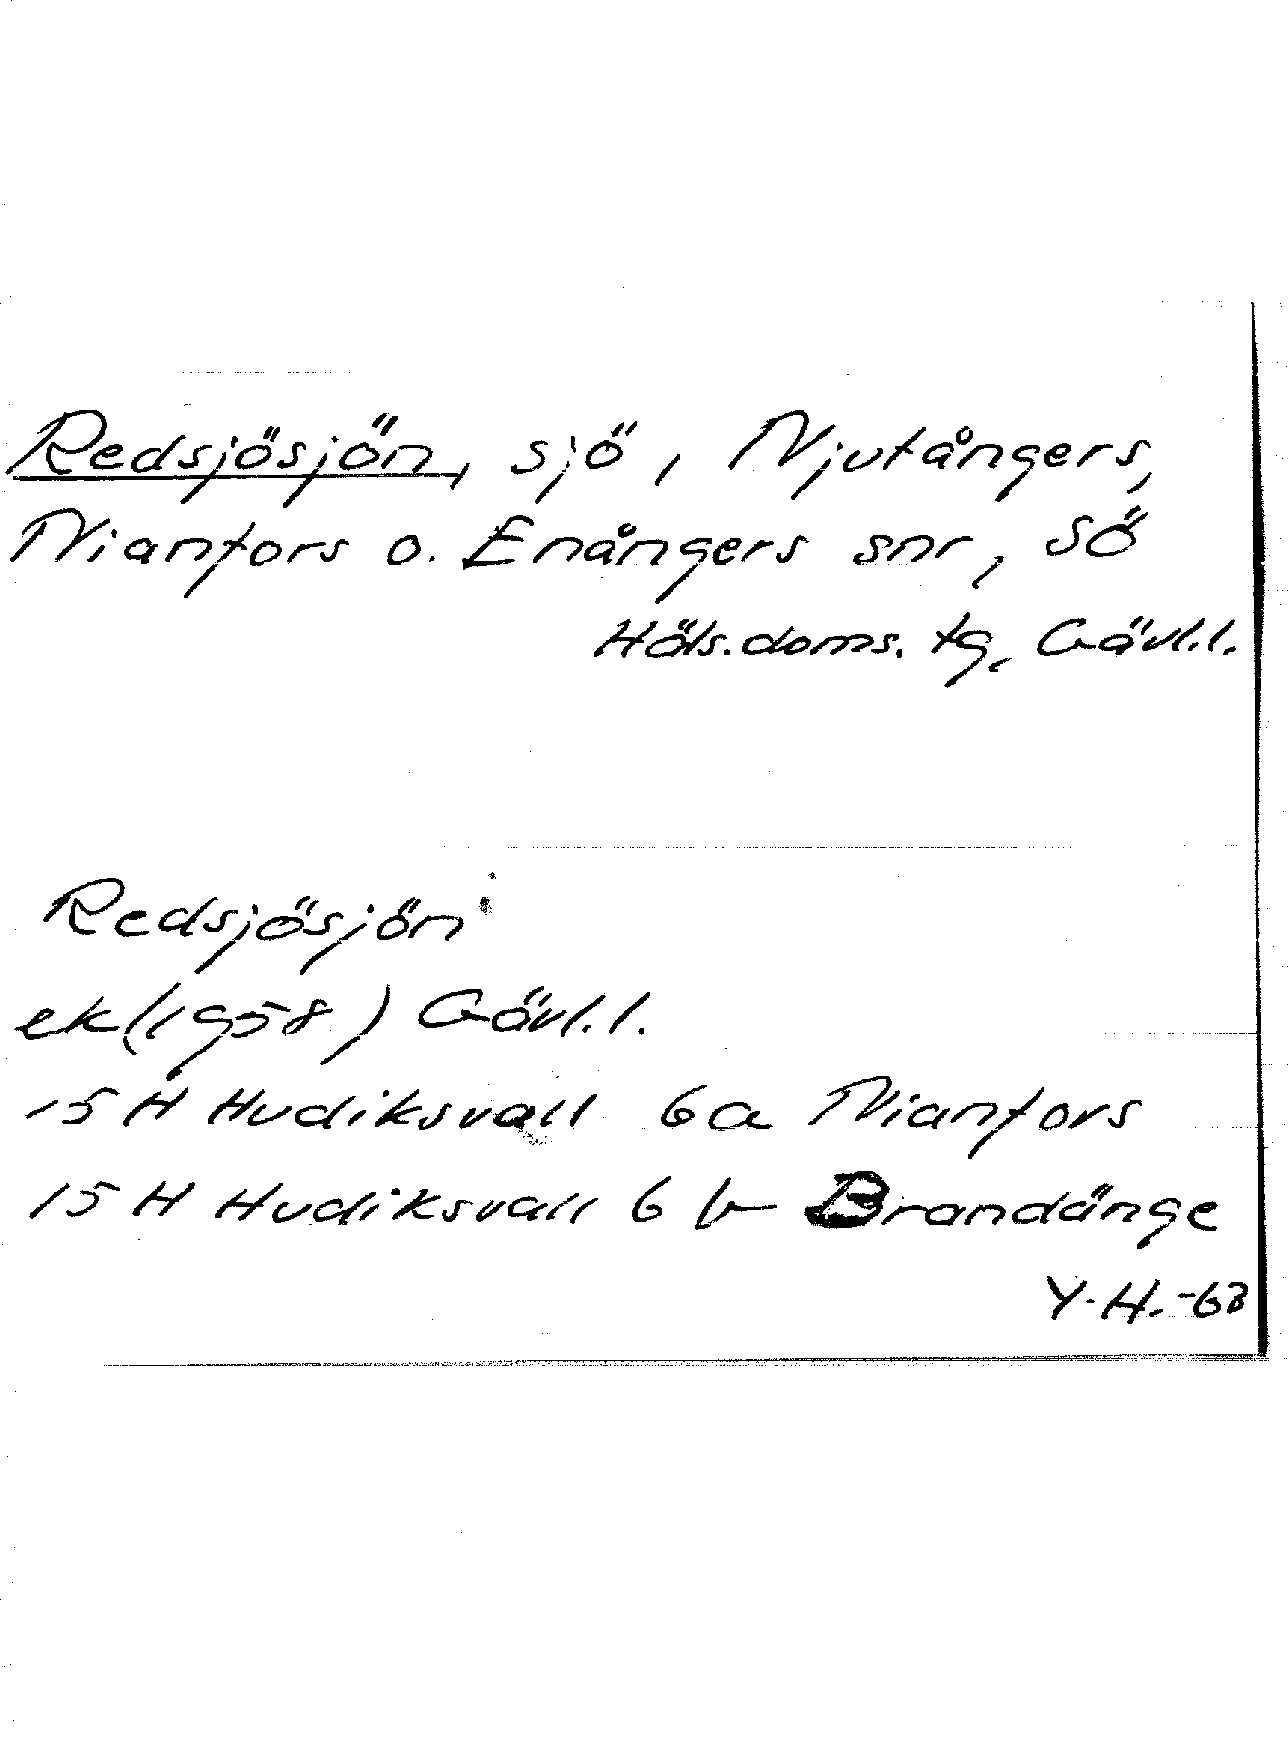 Redsjösjön, sjö, Njutångers,
Nianfors o. Enångers snr, SÖ
Häls. doms. tg. Gävl.l.
Redsjösjön
ek (1958) Gävl.l.
15 H Hudiksvall 6a Nianfors
15 H Hudiksvall 6 b Brandänge
Y.H. -63